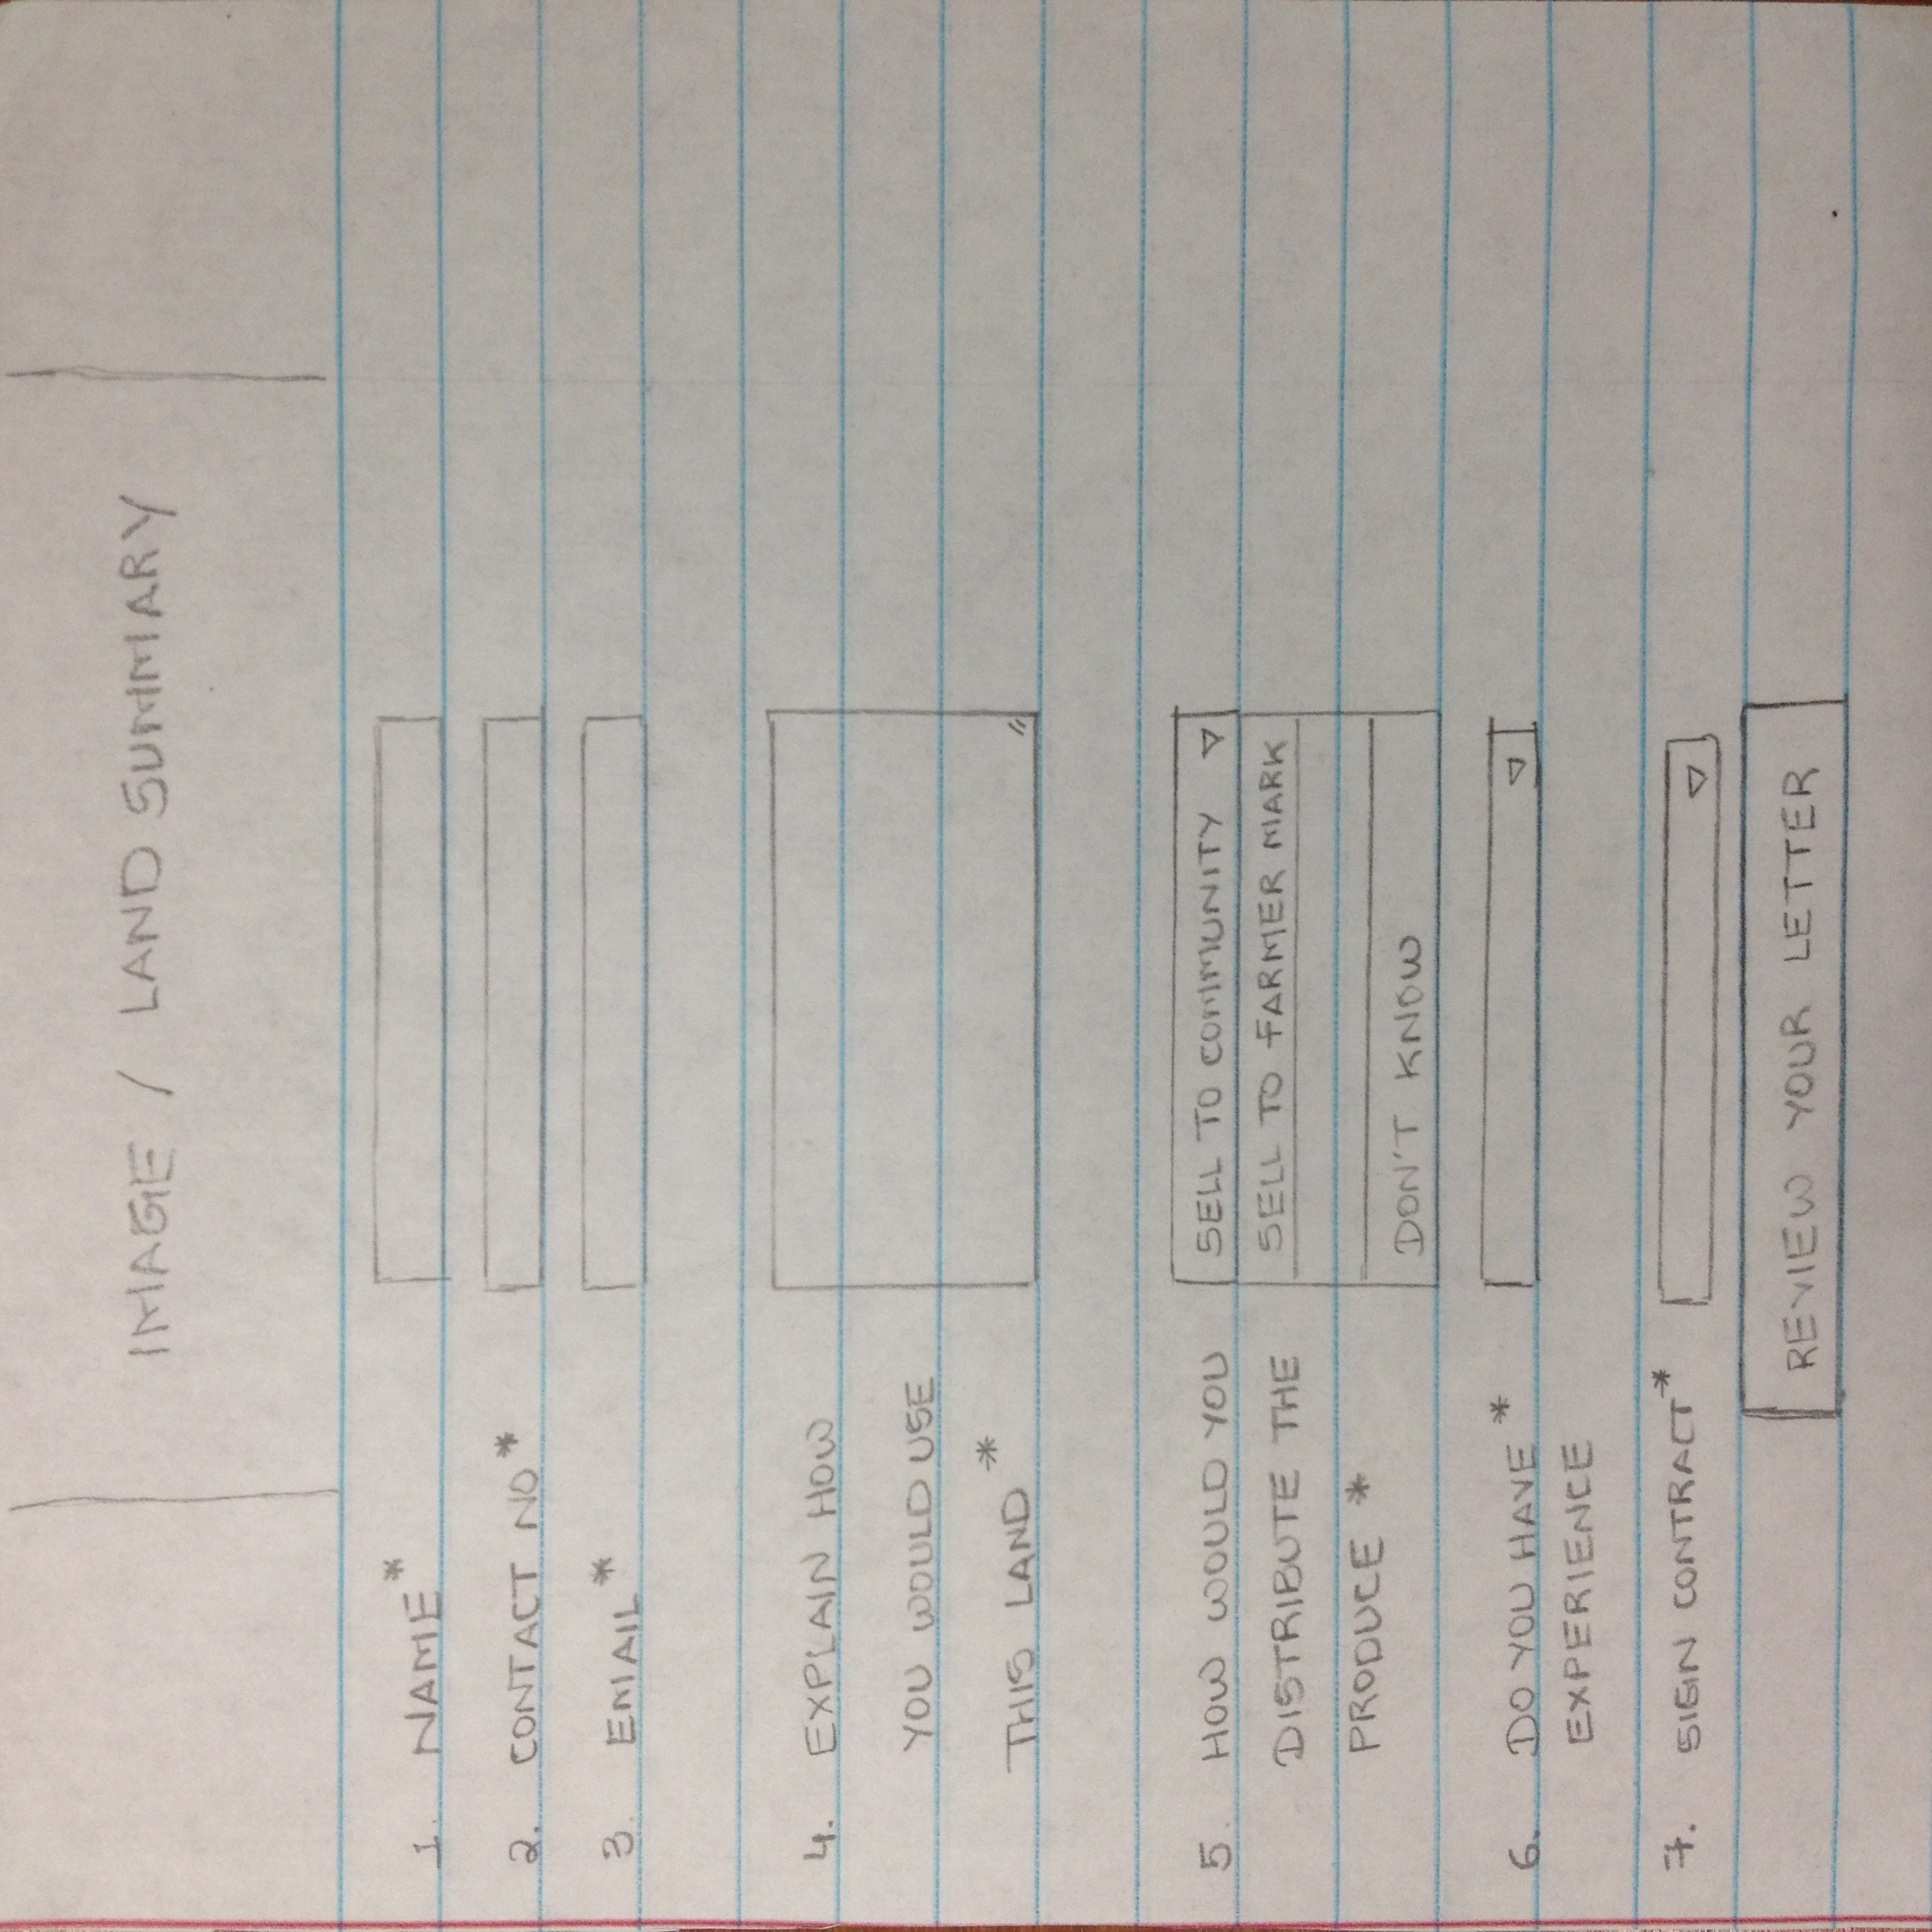 IMAGE / LAND SUMMARY
1. NAME*
2. CONTACT NO*
3. EMAIL*
4. EXPLAIN HOW
YOU WOULD USE
THIS LAND*
5. HOW WOULD YOU
DISTRIBUTE THE
PRODUCE *
SELL TO COMMUNITY
SELL TO FARMER MARK
DON'T KNOW
6. DO YOU HAVE*
EXPERIENCE
7. SIGN CONTRACT*
REVIEW YOUR LETTER